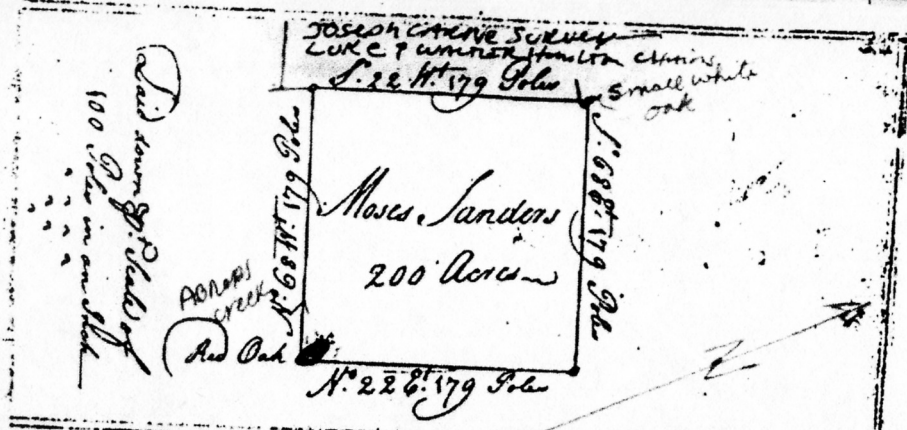 JOSEPH SURVEY
LUKE &
S. 22 Wt 179 Poles
Small white
oak
Laid down by a Scale of
100 Poles in an Inch
N. 68 Wt 179 Poles
Moses Sanders
200 Acres
S. 68 Et 179 Poles
Creek
Red Oak
No 22 Et 179 Poles
N